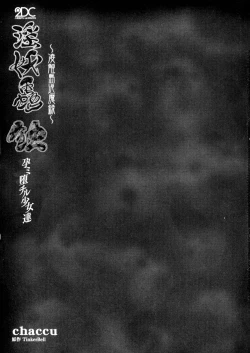 2DC
淫妖蟲 蝕
孕ミ堕チル少女達
chaccu
原作 TinkerBell